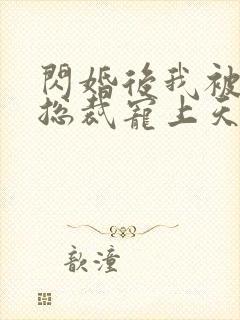 閃婚後我被
總裁寵上天
歆潼